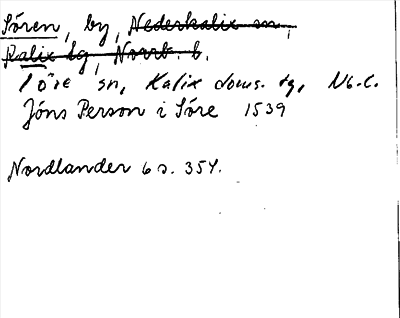 Sören, by, Nederkalix sn,
Kalix tg, Norrb. l.
Töre sn, Kalix doms. tg, Nb. l.
Jóns Person i Söre 1539
Nordlander 6 s. 354.